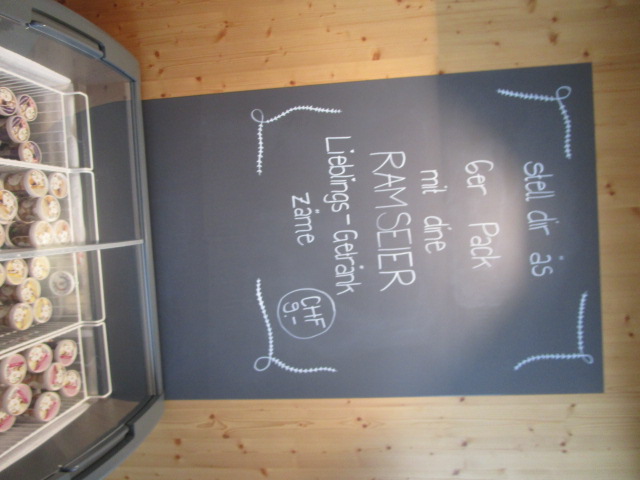 stell dir äs
6er Pack
mit dine
RAMSEIER
Lieblings-Getränk
zäme
CHF
9.-